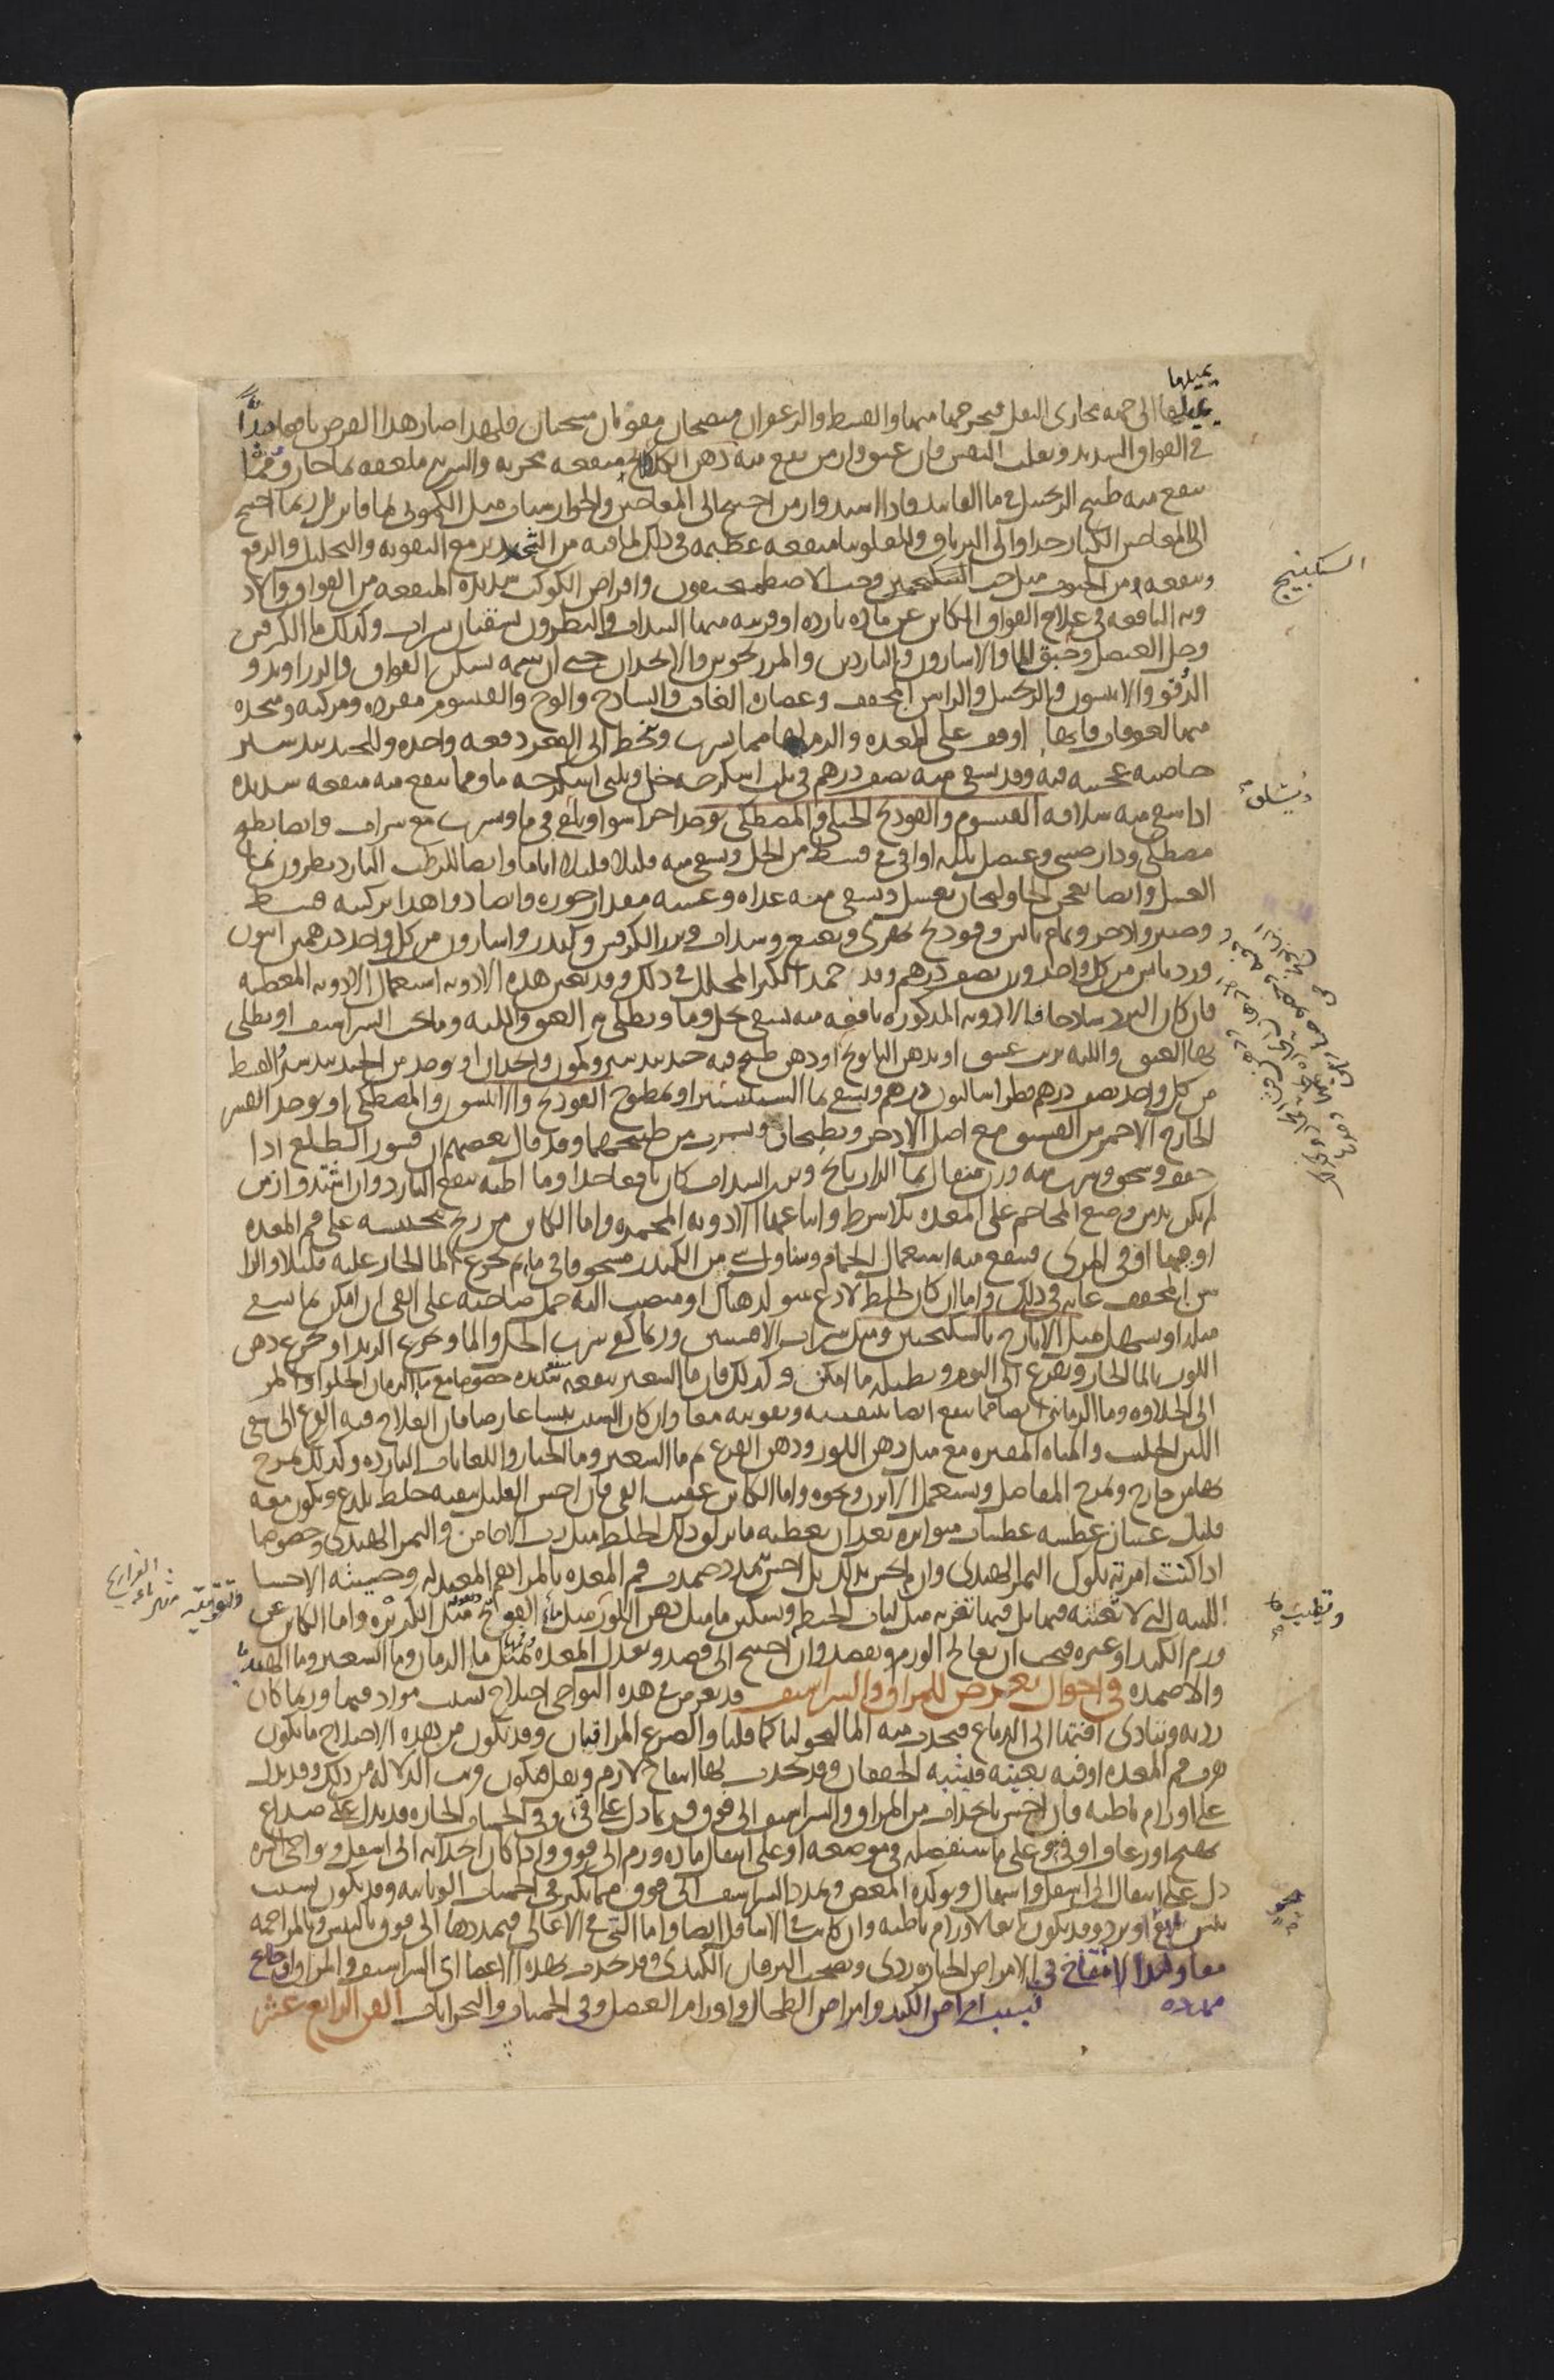 يميلها
يميلها الى جهة مجارى الثفل فيخرجها منها والقسط والزعفران منضجان مقويان مسخنان فلهذا صار هذا القرص نافعا جدا
فى الفواق الشديد وتقلب النفس فان عتق وازمن نفع منه دهن الكلكلانج منفعة مجربة والشربة ملعقة بماء حار ومما
ينفع منه طبيخ الزنجبيل فى ماء الفانيذ واذا اشتد وازمن احتيج الى المعاجين والجوارشنات مثل الكمونى بماء فاتر بل ربما احتيج
الى المعاجين الكبار جدا والى الترياق وللفلونيا منفعة عظيمة فى ذلك لما فيه من التخدير مع التقوية والتحليل والدفع
وينفعه من الحبوب مثل حب السكبينج وحب الاصطمخيقون واقراص الكوكب شديدة المنفعة من الفواق والادو
السكبينج
وية النافعة فى علاج الفواق الكائن عن مادة باردة او قريبة منها السذاب والنطرون يسقيان بشراب وكذلك ماء الكرفس
وخل العنصل وحبق الماء والاسارون والناردين والمرزنجوش والانجدان حتى ان شمه يسكن الفواق والزراوند و
الدوقو والانيسون والزنجبيل والراسن المجفف وعصارة الغافت والساذج والوج والقيسوم مفردة ومركبة ومتخذة
منها لعوقات فانها اوفق على المعدة والزم لها مما يشرب وينحط الى القعر دفعة واحدة وللجندبيدستر
خاصية عجيبة فيه وقد يسقى منه نصف درهم فى ثلث اسكرجة خل وثلثى اسكرجة ماء ومما ينفع منه منفعة شديدة
اذا سقى منه سلاقة القيسوم والفودنج الجبلى والمصطكى يوخذ اجزاء سواء ويلقى فى ماء وشرب مع شراب وايضا يطبخ
مصطكى ودارصينى وعنصل ثلثة اواقى فى قسط من الخل ويسقى منه قليلا قليلا اياما وايضا للرطب البارد نطرون بماء
العسل وايضا يعجن الخاولنجان بعسل ويسقى منه غداة وعشية مقدار جوزة وايضا دواء هذا تركيبه قسط
وصبر واذخر ونمام يابس وفودنج نهرى ونعنع وسذاب وبزر الكرفس وكندر واسارون من كل واحد درهمين افيون
وورد يابس من كل واحد وزن نصف درهم وقد حمد الكبر المخلل فى ذلك وقد يعين هذه الادوية استعمال الادوية المعطشة
فان كان البرد ساذجا فالادوية المذكورة نافعة منه يسقى بخل وماء ويطلى به العنق واللبة وما تحت الشراسيف او يطلى
بها العنق واللبة بزيت عتيق او بدهن البابونج او دهن طبخ فيه جندبيدستر وكمون وانجدان او يوخذ من الجندبيدستر والقسط
من كل واحد نصف درهم فطراساليون درهم ويسقى بماء السيسنبر او بمطبوخ الفودنج والانيسون والمصطكى او يوخذ القشر
الخارج الاحمر من الفستق مع اصل الاذخر ويطبخان ويشرب من طبيخهما وقد قال بعضهم ان قشور الطلع اذا
جفف وسحق وشرب منه وزن مثقال بماء الرازيانج وبزر السذاب كان نافعا جدا وما اظنه ينفع البارد وان اشتد وازمن
لم يكن بد من وضع المحاجم على المعدة بلا شرط واتباعها الادوية المحمرة واما الكائن من ريح محتبسة على فم المعدة
او فيها او فى المرى فينفع منه استعمال الحمام وتناول شى من الكندر مسحوقا فى ماء ثم يجرع الماء الحار عليه قليلا والرا
سن المجفف غاية فى ذلك واما ان كان الخلط لاذع يتولد هناك او ينصب اليه حمل صاحبه على القى ان امكن بما يسقى
مثله او يسهل مثل الايارج بالسكنجبين ومثل شراب الافسنتين وربما كفى شرب الخل والماء وجرع الزبد او تجرع دهن
اللوز بالماء الحار ويفزع الى النوم ويطيله ما امكن وكذلك فان ماء الشعير ينفعه منفعة شديدة خصوصا مع ماء الرمان الحلو او المز
الى الحلاوة وماء الرمانين ايضا مما ينفع ايضا بتنقيته وتقويته معا وان كان السبب يبسا عارضا فان العلاج فيه الفزع الى سقى
اللبن الحليب والمياه المفترة مع مثل دهن اللوز ودهن القرع ثم ماء الشعير وماء الخيار واللعابات الباردة وكذلك تمرخ
بها من خارج وتمرخ المفاصل ويستعمل الابزن ونحوه واما الكائن عقيب القى فان احس العليل ببقية خلط يلذع ويكون معه
قليل غثيان عطسه عطسات متواترة بعد ان يعطيه ما يزلق ذلك الخلط مثل رب الاجاص والتمر الهندى وخصوصا
اذا كنت امرته باكل التمر الهندى وان لم يحس بذلك بل احس بتمدد ضمدت فم المعدة بالمراهم المعتدلة وحسيته الاحساء
اللينة التى لا تغثيه فيها بل فيها تغرية مثل لباب الحنطة وتسكين ما مثل دهن اللوز مثل ماء الفراريج مثل الكزبرة واما الكائن عن
وتطييب ما
ورم الكبد او غيره فيجب ان يعالج الورم ويفصد وان احتيج الى فصد ويعدل المعدة بمثل ماء الرمان وماء الشعير وماء الهندبا
والاضمدة فى احوال تعرض للمراق والشراسيف قد يعرض فى هذه النواحى اختلاج بسبب مواد فيها وربما كانت
ردية وتتادى افتها الى الدماغ فيحدث منه المالنخوليا كما قلنا والصرع المراقيان وقد يكون من هذه الاختلاج ما يكون
بقرب فم المعدة او فيه بعينه فيشبه الخفقان وقد يحدث لها انتفاخ لازم وثقل فيكون قريب الدلالة من ذلك وقد يدل
على اورام باطنة فان احس بانجذاب من المراق والشراسيف الى فوق فربما دل على قى وفى الحميات الحارة قد يدل على صداع
يهيج او رعاف او قى على ما سنفصله فى موضعه او على انتقال مادة ورم الى فوق واذا كان انجذابه الى اسفل ونواحى السرة
دل على انتقال الى اسفل واسهال ويوكده المغص وتمدد الشراسيف الى فوق مما يكثر فى الحميات الوبائية وقد يكون بسبب
يبس او برد وقد يكون تابعا لاورام باطنة وان كانت فى الاسافل ايضا واما التى فى الاعالى فتمددها الى فوق باليبس وبالمزاحمة
معا وهذا الانتفاخ فى الامراض الحارة ردى ويصحب اليرقان الكبدى وقد يحدث بهذه الاعضاء اى الشراسيف والمراق اوجاع
ممددة بسبب امراض الكبد وامراض الطحال واورام العضل وفى الحميات والبحرانات الفن الرابع عشر